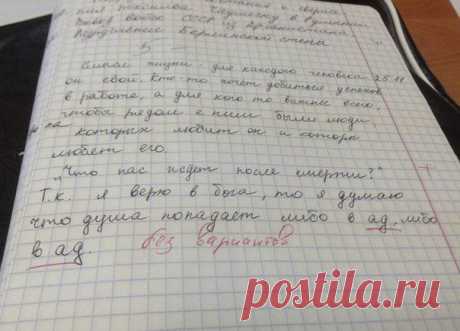 вывод войск СССР из Афганистана
Разрушение Берлинской стены
Смысл жизни - для каждого человека 25.11
он свой. Кто-то хочет добиться успехов
в работе, а для кого то важнее всего,
чтобы рядом с ним были люди
которых любит он и которые
любят его.
"Что нас ждет после смерти?"
Т.к. я верю в бога, то я думаю
что душа попадает либо в ад, либо
в ад. без вариантов
postila.ru